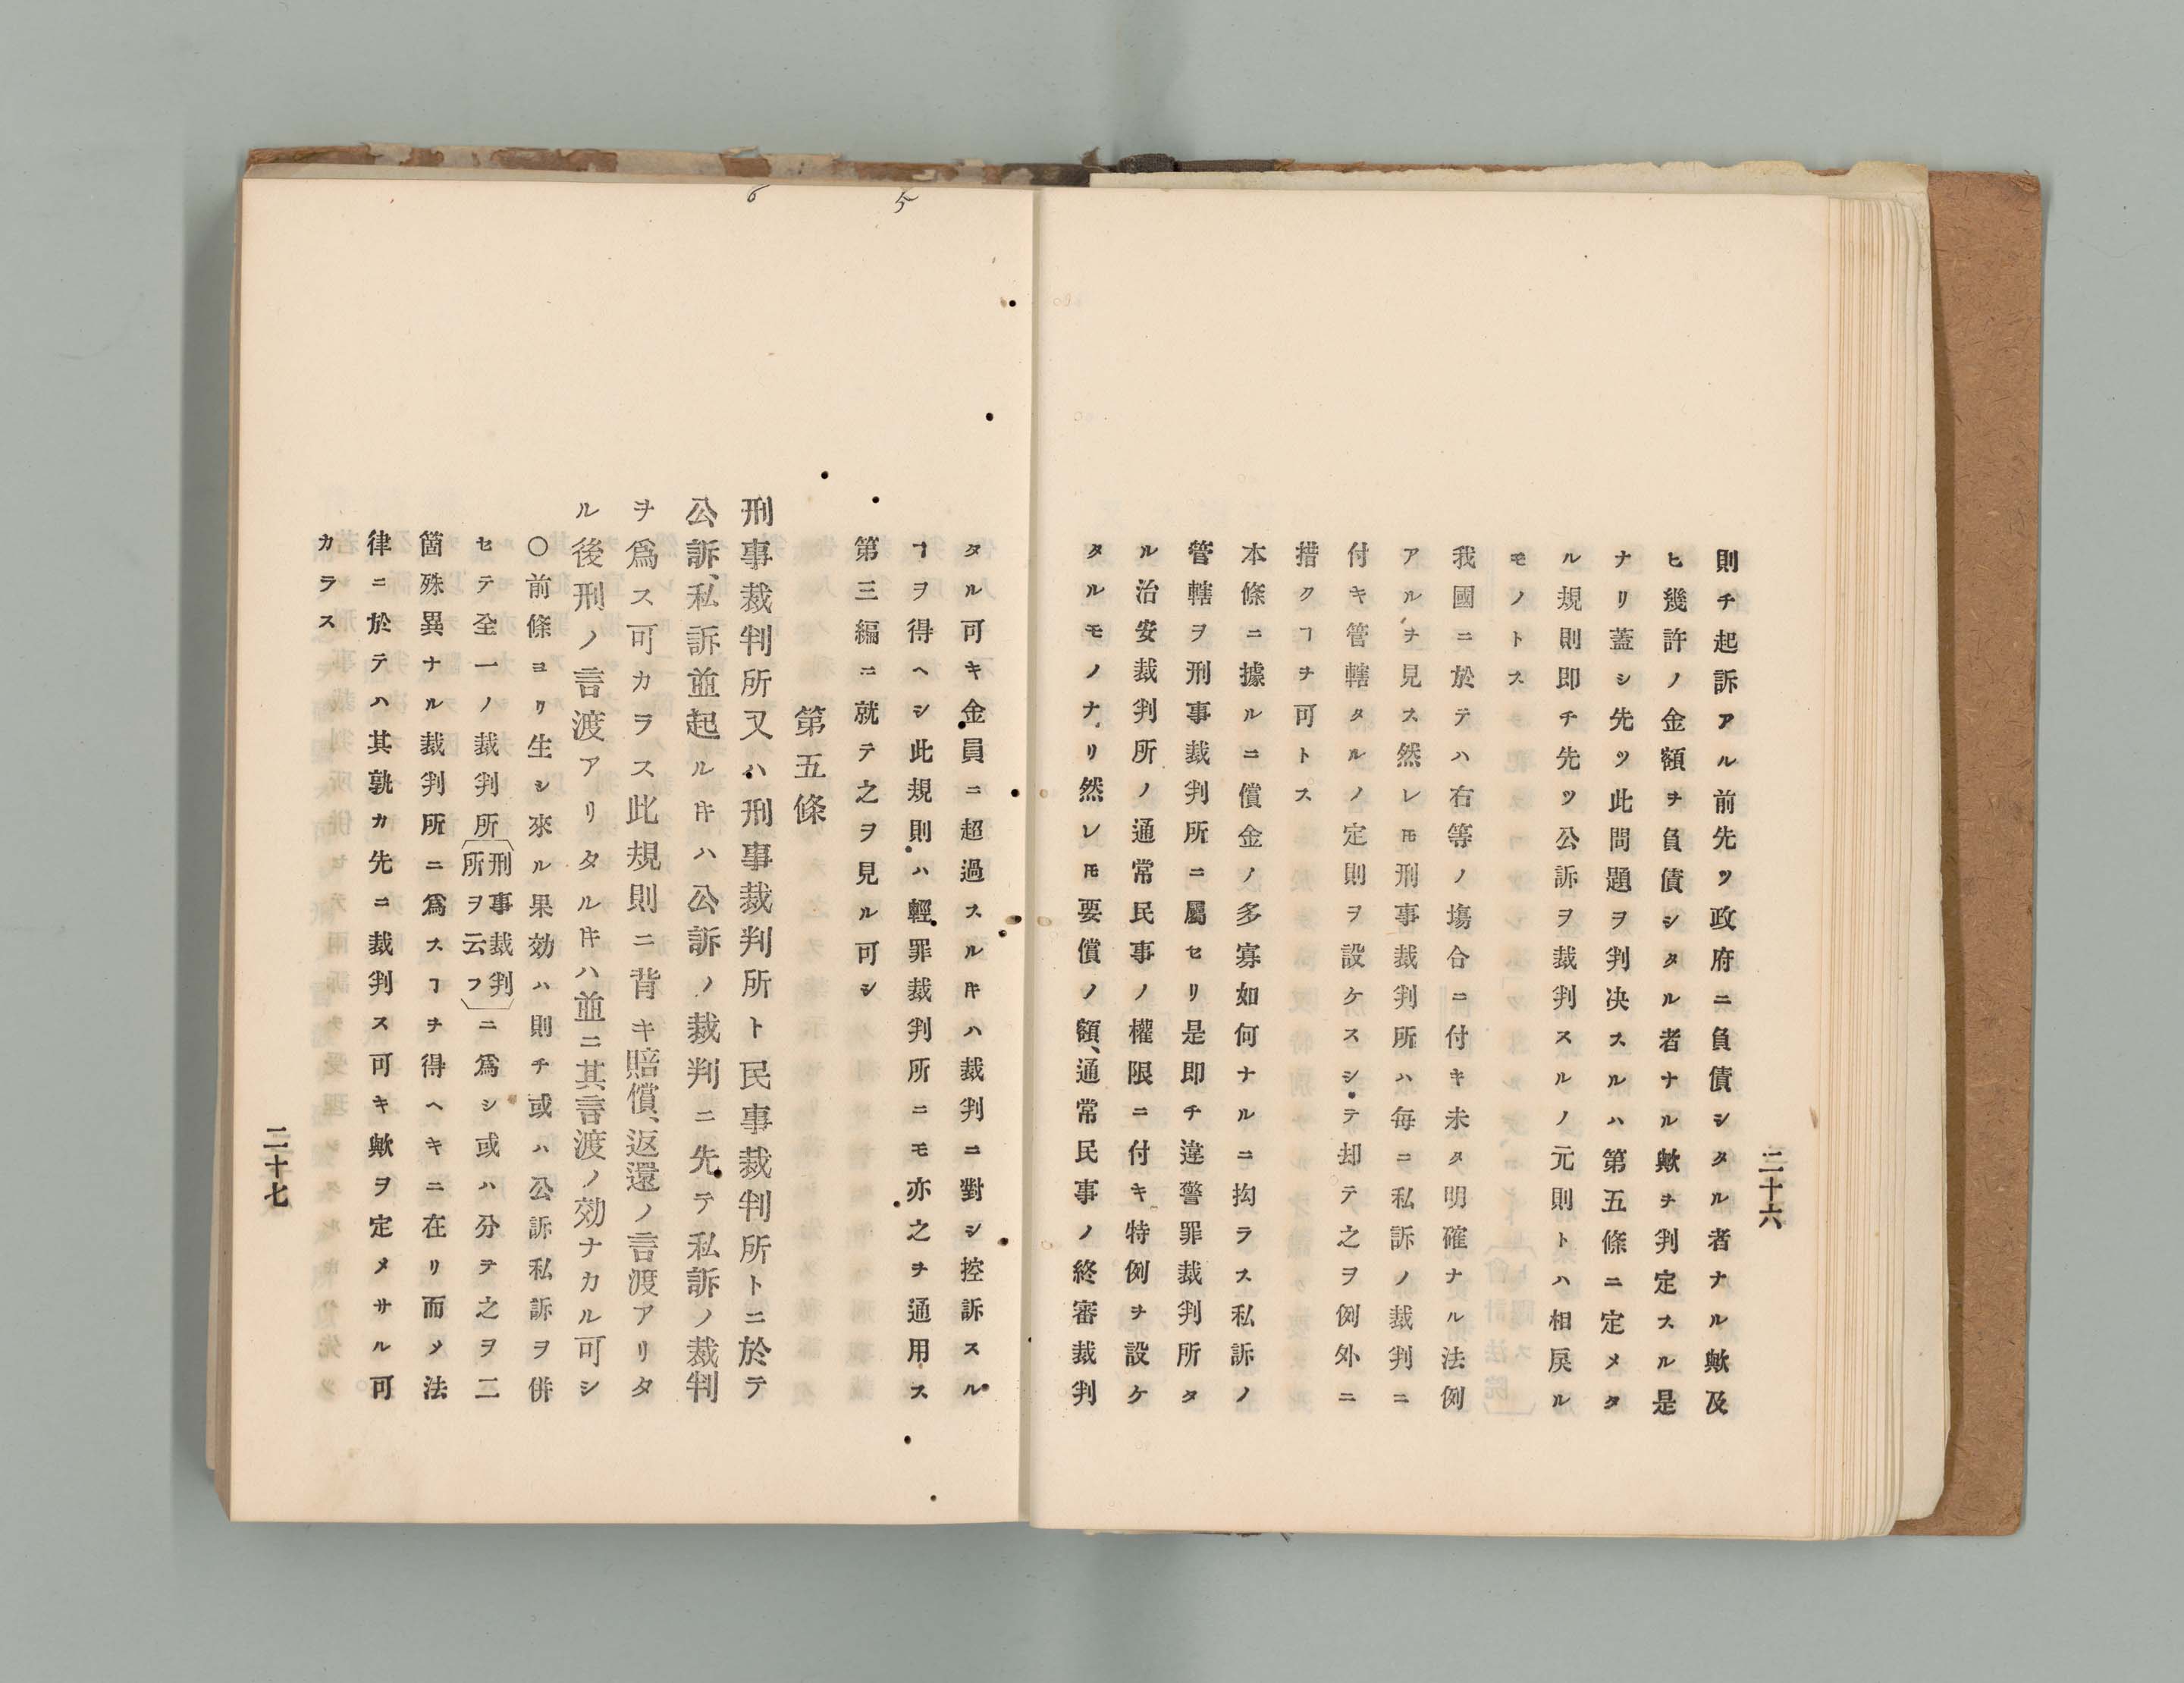 二十六
則チ起訴アル前先ツ政府ニ負債シタル者ナル歟及
ヒ幾許ノ金額ヲ負債シタル者ナル歟ヲ判定スル是
ナリ蓋シ先ツ此問題ヲ判决スルハ第五條ニ定メタ
ル規則即チ先ツ公訴ヲ裁判スルノ元則トハ相戾ル
モノトス
我國ニ於テハ右等ノ塲合ニ付キ未タ明確ナル法例
アルヲ見ス然レ𪜈刑事裁判所ハ毎ニ私訴ノ裁判ニ
付キ管轄タルノ定則ヲ設ケスシテ却テ之ヲ例外ニ
措クヿヲ可トス
本條ニ據ルニ償金ノ多寡如何ナルニ拘ラス私訴ノ
管轄ヲ刑事裁判所ニ屬セリ是即チ違警罪裁判所タ
ル治安裁判所ノ通常民事ノ權限ニ付キ特例ヲ設ケ
タルモノナリ然レ𪜈要償ノ額、通常民事ノ終審裁判
5
6
タル可キ金員ニ超過スル𪜈ハ裁判ニ對シ控訴スル
ヿヲ得ヘシ此規則ハ輕罪裁判所ニモ亦之ヲ通用ス
第三編ニ就テ之ヲ見ル可シ
第五條
刑事裁判所又ハ刑事裁判所ト民事裁判所トニ於テ
公訴、私訴並起ルキハ公訴ノ裁判ニ先テ私訴ノ裁判
ヲ爲ス可カラス此規則ニ背キ賠償、返還ノ言渡アリタ
ル後刑ノ言渡アリタルキハ並ニ其言渡ノ効ナカル可シ
〇前條ヨリ生シ來ル果効ハ則チ或ハ公訴私訴ヲ併
セテ仝一ノ裁判所〔刑事裁判所ヲ云フ〕ニ爲シ或ハ分テ之ヲ二
箇殊異ナル裁判所ニ爲スヿヲ得ヘキニ在リ而〆法
律ニ於テハ其孰カ先ニ裁判ス可キ歟ヲ定メサル可
カラス
二十七